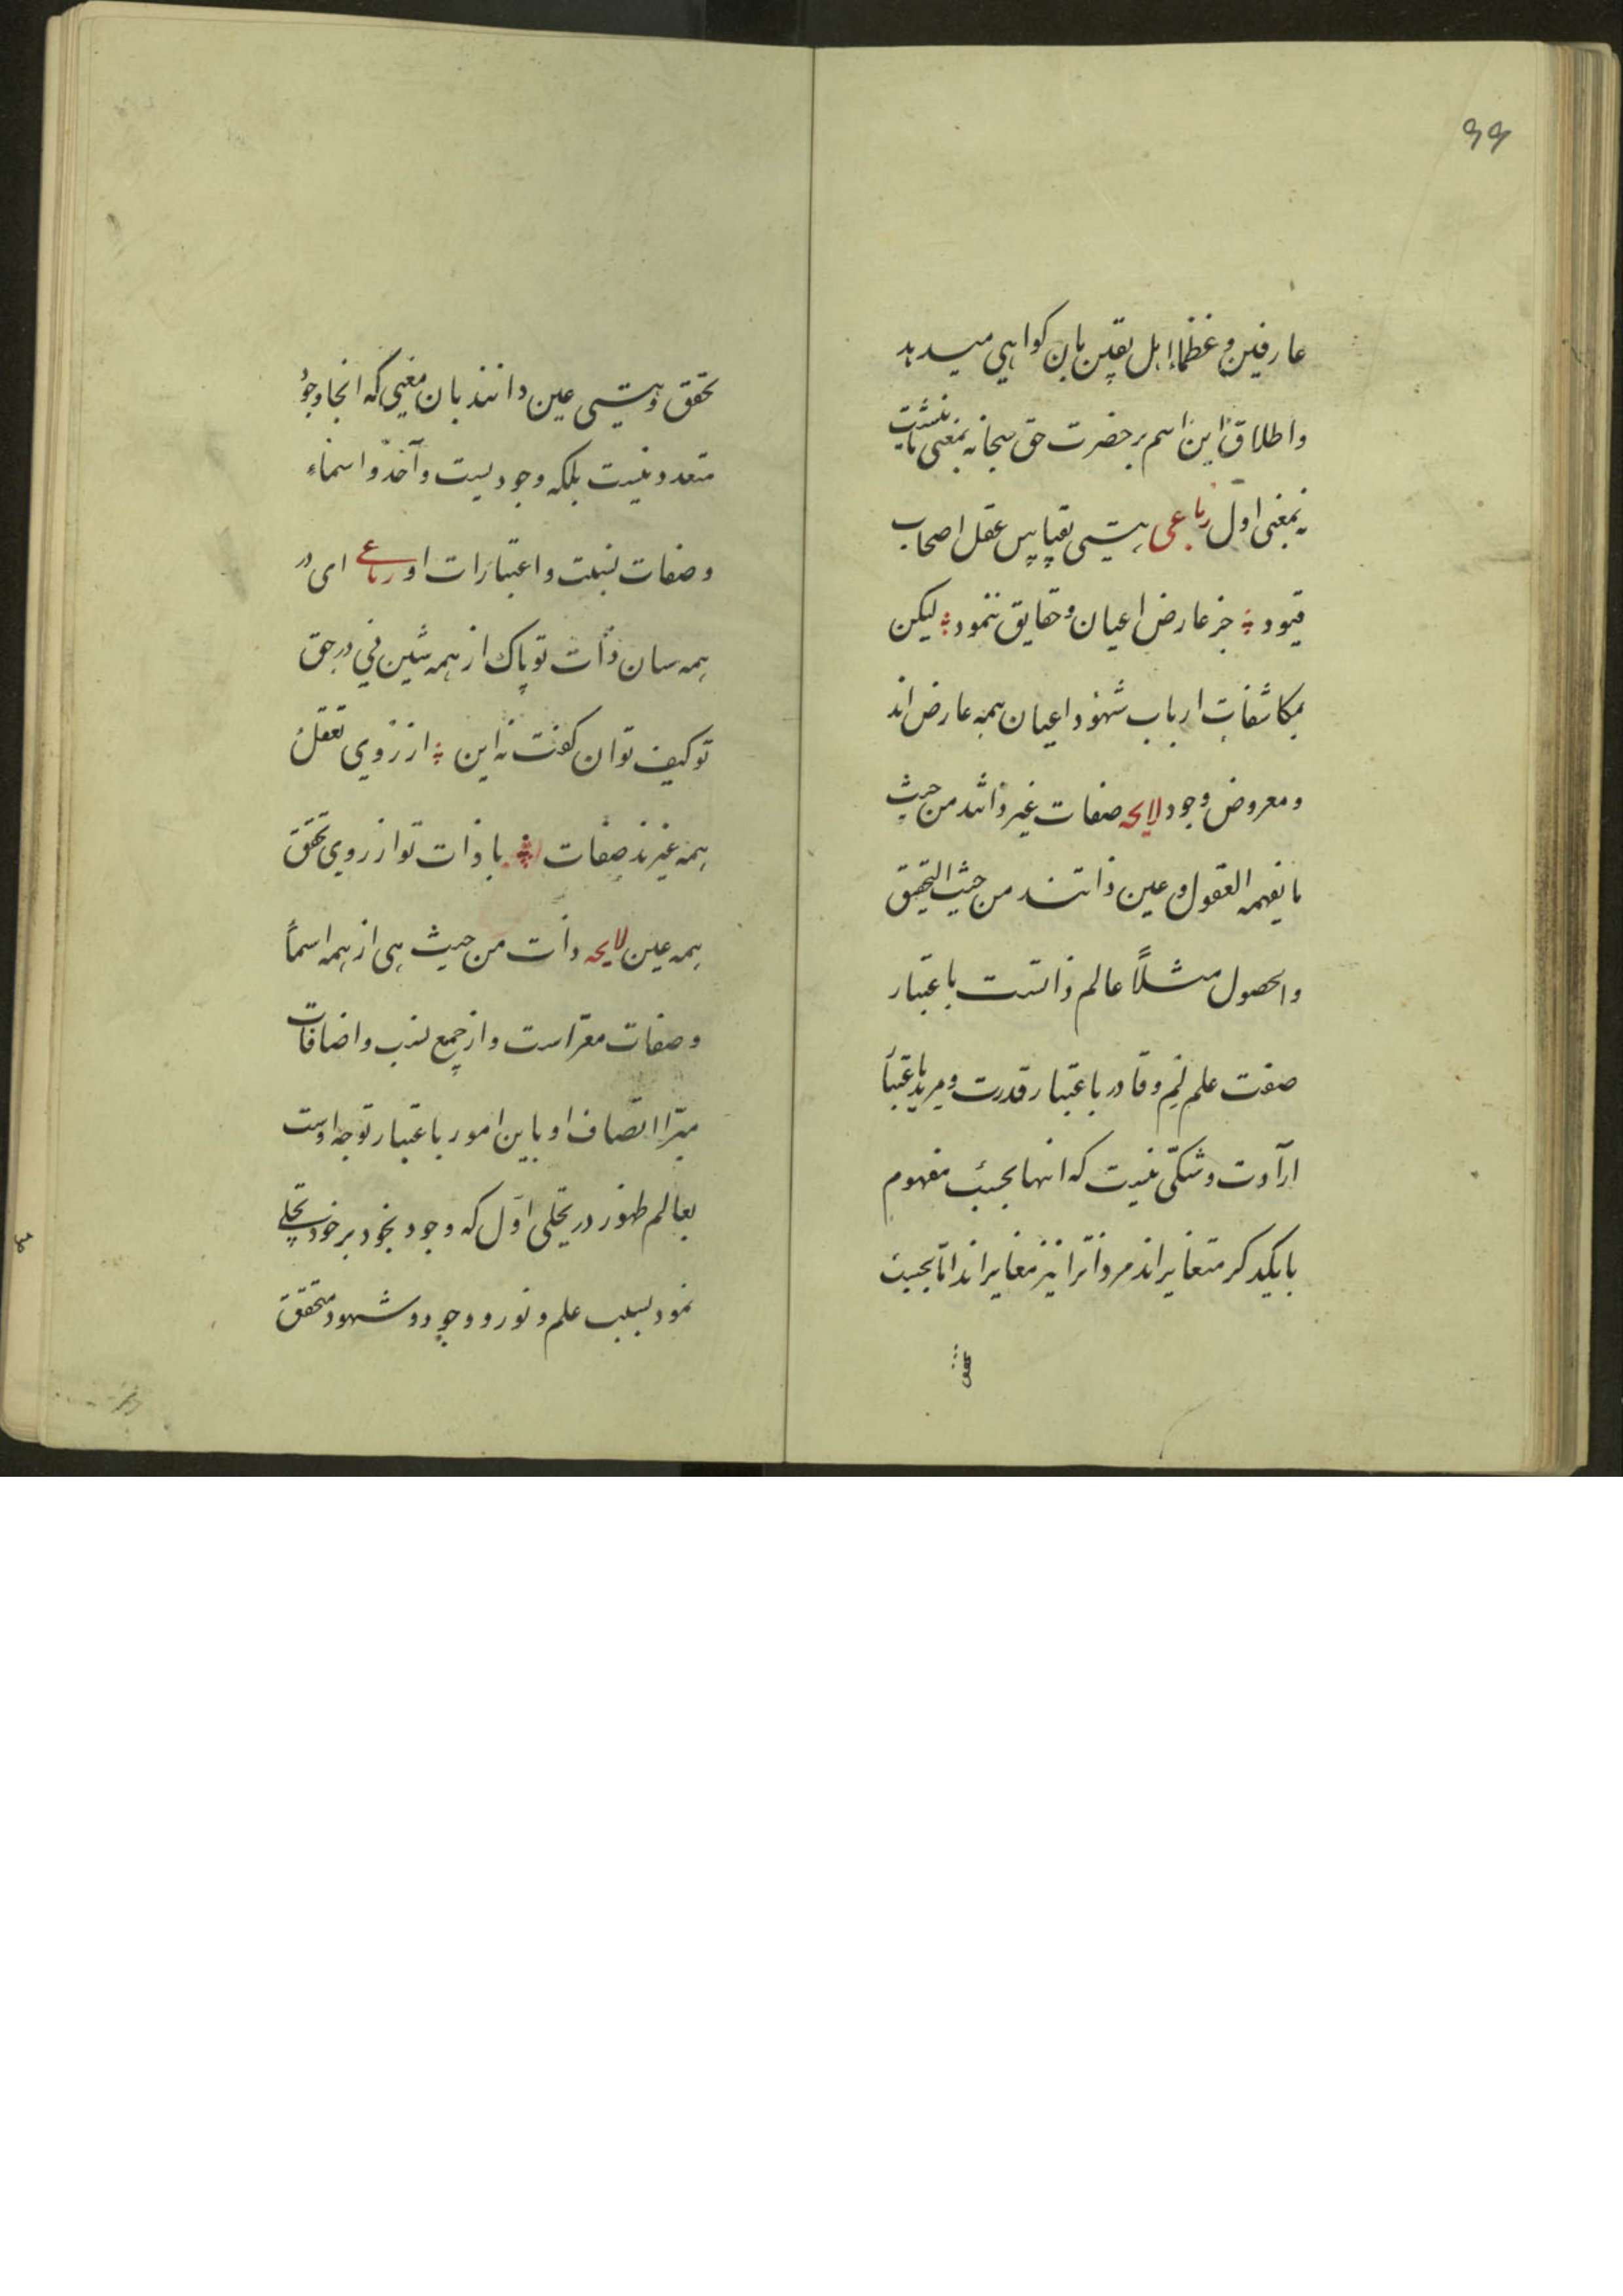 ۶۶
عارفین و عظماء اهل یقین بان کواهی میدهد
و اطلاق این اسم بر حضرت حق سبحانه بمعنی ثانیست
نه بمعنی اول رباعی هستی بقیاس عقل اصحاب
قیود جز عارض اعیان و حقایق ننمود لیکن
بمکاشفات ارباب شهود اعیان همه عارض اند
و معروض وجود لایحه صفات غیر ذاتند من حیث
ما یفهمه العقول و عین ذاتند من حیث التحقیق
والحصول مثلاً عالم ذاتست باعتبار
صفت علم و قادر باعتبار قدرت و مرید باعتبار
ارآدت و شکّی نیست که انها بحسب مفهوم
با یکدکر متغایر اند مر ذاترا نیز مغایر اند امّا بحسب
تحقق و هستی عین ذاتند بان معنی که انجا وجود
متعدد نیست بلکه وجودیست واحد و اسماء
و صفات نسبت و اعتبارات او رباعی ای در
همه سان ذات تو پاک از همه شین نی در حق
تو کیف توان کفت نه این از روی تعقل
همه غیرند صفات با ذات تو از روی تحقق
همه عین لایحه ذات من حیث هی از همه اسماً
و صفات معرّاست و از جمیع نسب و اضافات
مبرّا اتصاف او باین امور باعتبار توجه اوست
بعالم ظهور در تجلی اوّل که وجود بخود بر خود تجلی
نمود نسبت علم و نور و وجود و شهود متحقق